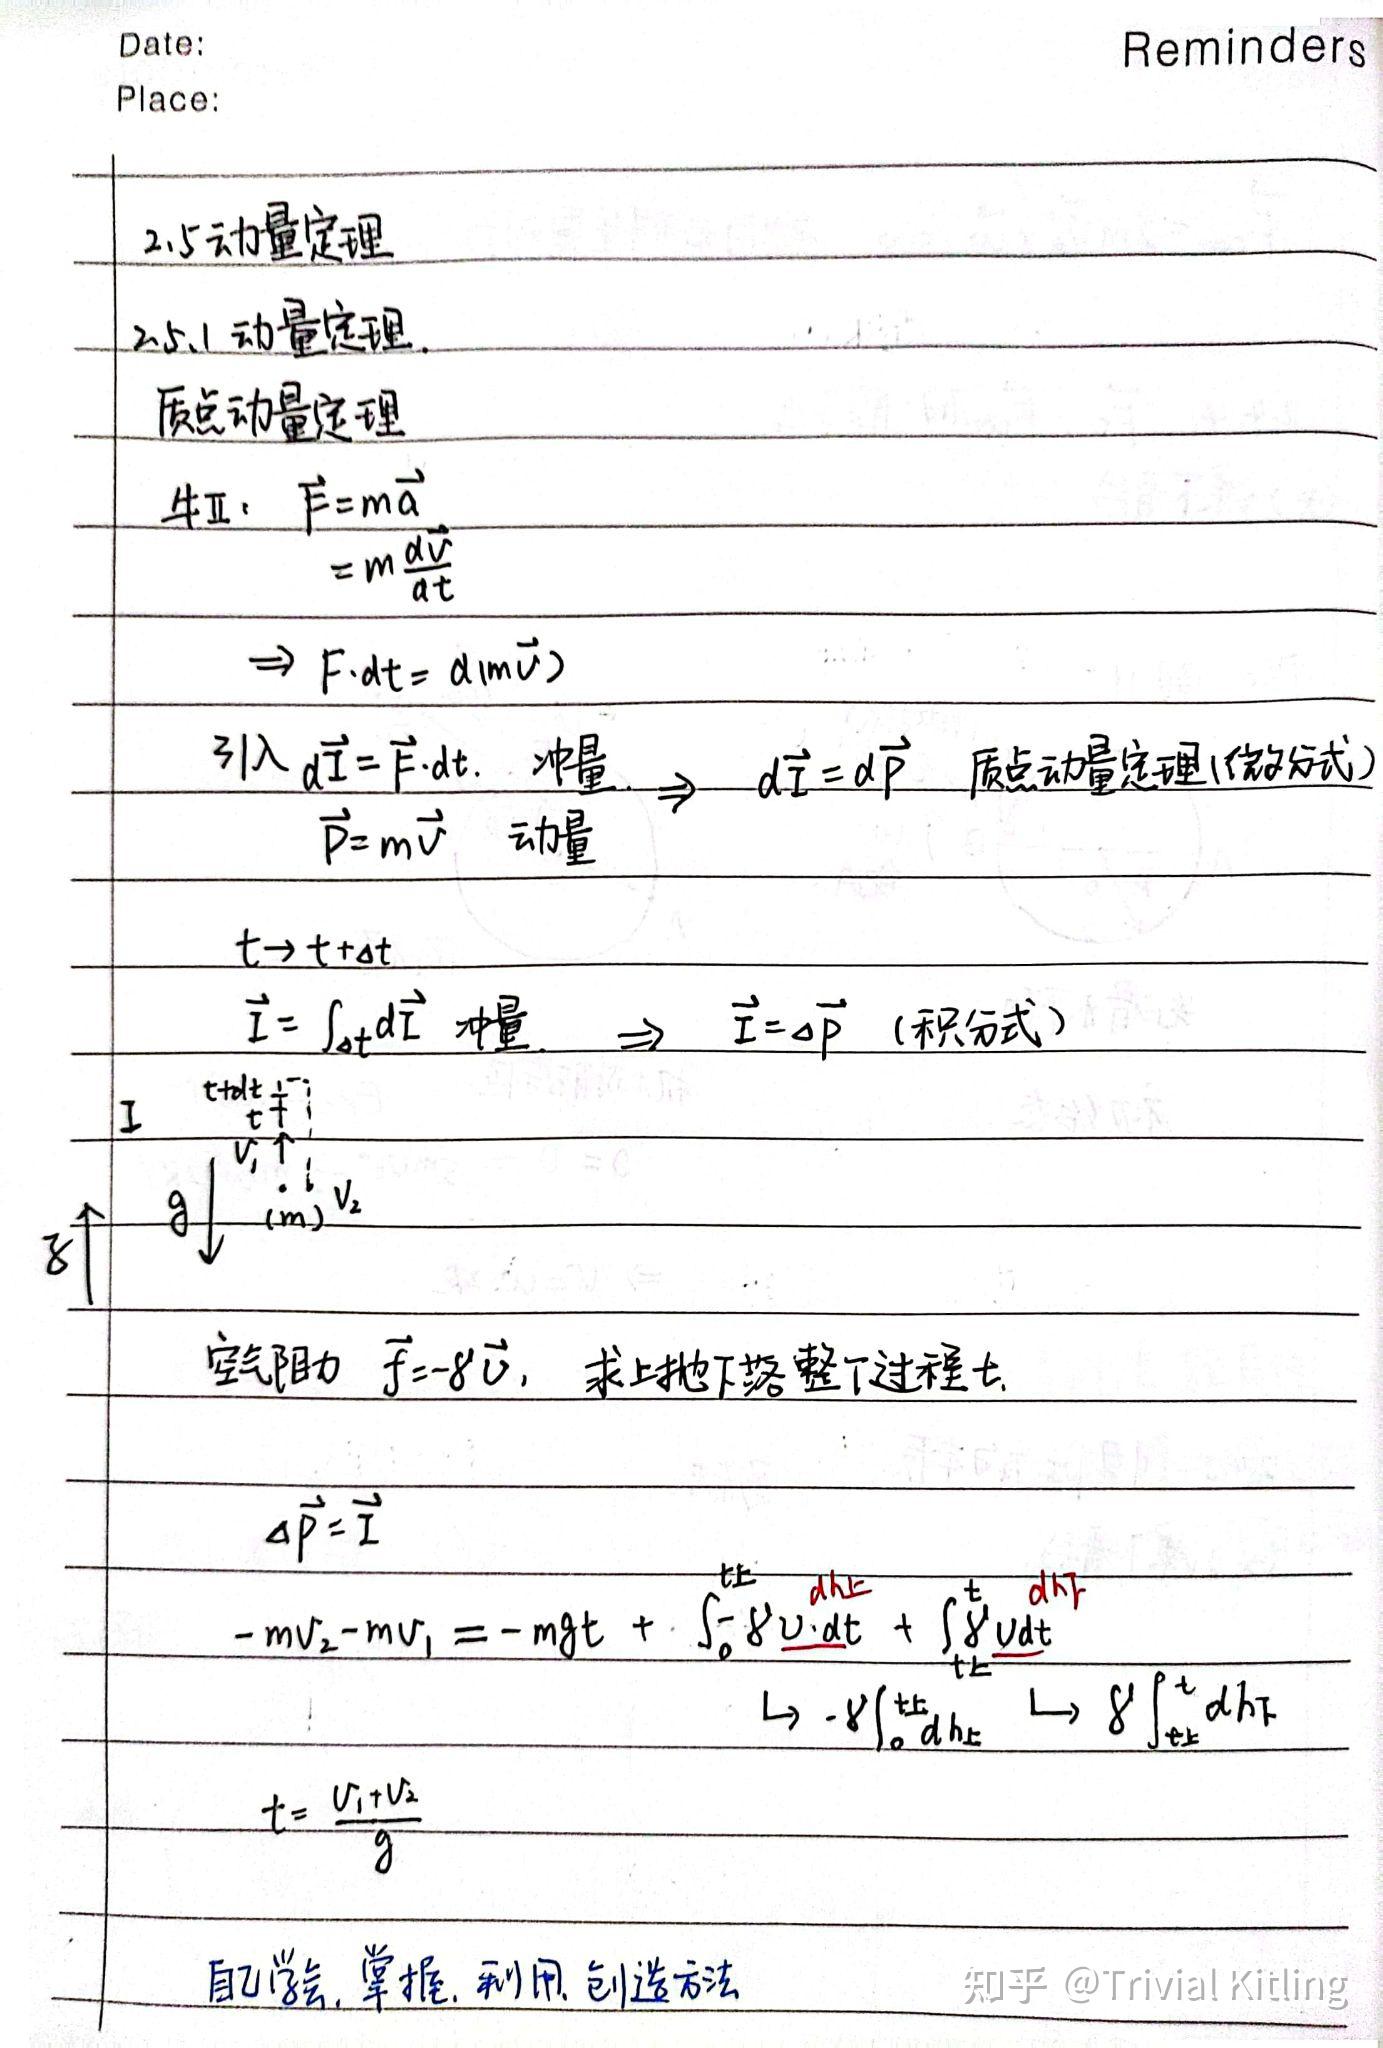 Date:
Reminders
Place:
2.5 动量定理
2.5.1 动量定理.
质点动量定理
牛Ⅱ: F⃗=ma⃗
=m dv⃗/dt
⇒ F·dt=d(mv⃗)
引入 dI⃗=F⃗·dt. 冲量. ⇒ dI⃗=dP⃗ 质点动量定理(微分式)
P⃗=mv⃗ 动量
t→t+Δt
I⃗=∫Δt dI⃗ 冲量. ⇒ I⃗=ΔP⃗ (积分式)
I
t+dt
t
V₁
g
(m) V₂
空气阻力 f⃗=-γv⃗, 求上抛下落整个过程t.
ΔP⃗=I⃗
dh上 dh下
-mv₂-mv₁=-mgt+∫₀^t上 -γv·dt+∫_t上^t γvdt
↳ -γ∫₀^t上 dh上 ↳ γ∫_t上^t dh下
t=(v₁+v₂)/g
自己学会,掌握,利用,创造方法
知乎 @Trivial Kitling